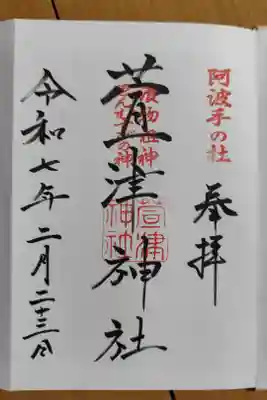 阿波手の杜
奉拝
漬物祖神
萱津神社
萱津
神社
令和七年二月二十三日